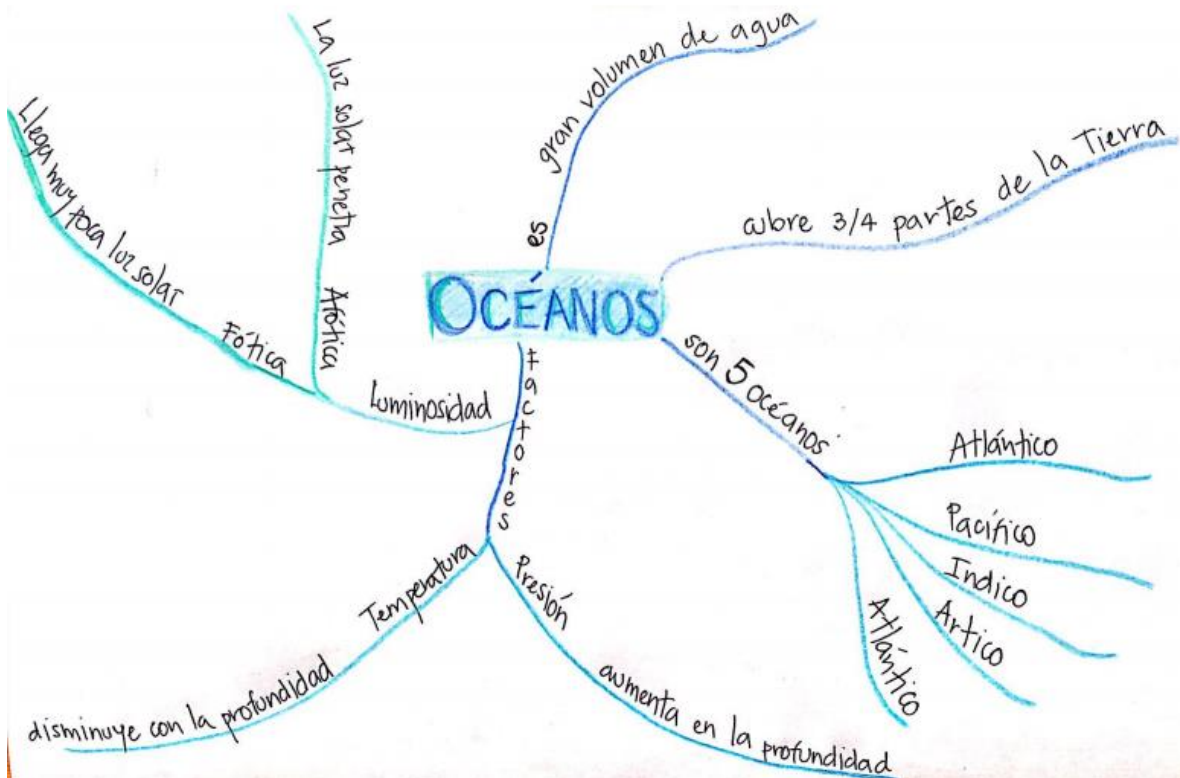 OCÉANOS
es
gran volumen de agua
cubre 3/4 partes de la Tierra
son 5 océanos
Atlántico
Pacífico
Indico
Artico
Atlántico
Factores
Presión
aumenta en la profundidad
Temperatura
disminuye con la profundidad
Luminosidad
Fótica
Llega muy poca luz solar
Afótica
La luz solar penetra